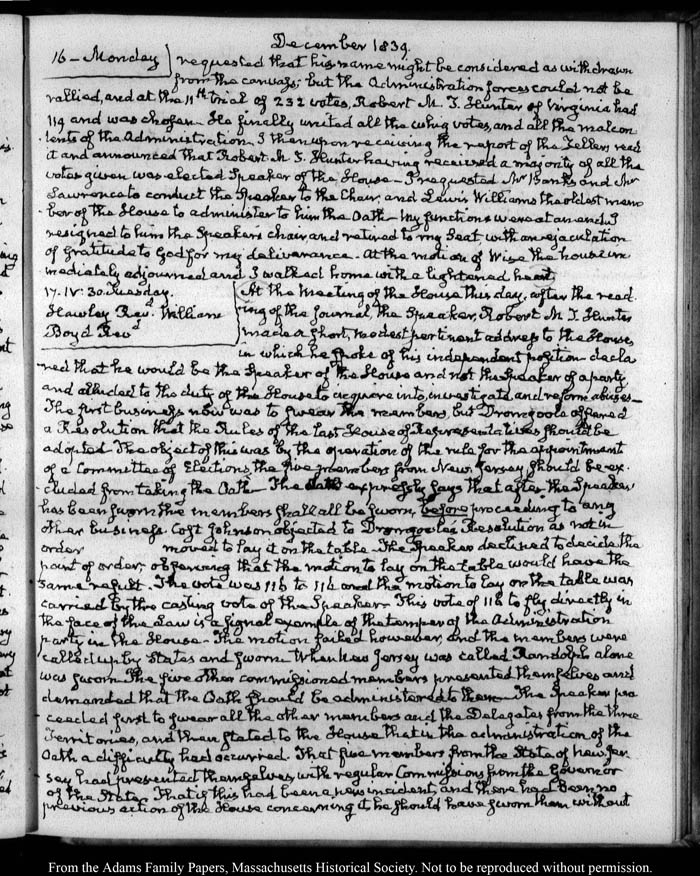 December 1839.
16 - Monday
requested that his name might be considered as withdrawn
from the canvass; but the Administration forces could not be
rallied, and at the 11th trial of 232 votes, Robert M. T. Hunter of Virginia had
119 and was chosen. He finally united all the whig votes, and all the malcon
tents of the Administration. I then upon receiving the report of the Tellers, read
it and announced that Robert M T. Hunter having received a majority of all the
votes given was elected Speaker of the House - I requested Mr Banks and Mr
Lawrence to conduct the Speaker to the Chair, and Lewis Williams the oldest mem
ber of the House to administer to him the Oath - My functions were at an end. I
resigned to him the Speaker's chair and retired to my Seat with an ejaculation
of gratitude to God for my deliverance. At the motion of Wise the house im
mediately adjourned and I walked home with a lightened heart
17. IV: 30. Tuesday.
Hawley Revd. William
Boyd Revd
At the meeting of the House this day, after the read
ing of the Journal, the Speaker, Robert M. T. Hunter
made a short, modest pertinent address to the House
in which he spoke of his independent position decla
red that he would be the Speaker of the House and not the Speaker of a party
and alluded to the duty of the House to enquire into, investigate, and reform abuses -
The first business now was to swear the members, but Dromgoole offered
a Resolution that the Rules of the last House of Representatives should be
adopted The object of this was by the operation of the rule for the appointment
of a Committee of Elections, the five members from New Jersey, should be ex-
cluded from taking the Oath - The expressly says that after the Speaker
has been sworn the members shall all be sworn, before proceeding to any
other business. Cost Johnson objected to Dromgoole's Resolution as not in
order moved to lay it on the table - The Speaker declined to decide the
point of order; observing that the motion to lay on the table would have the
same result. The vote was 116 to 116 and the motion to lay on the table was
carried by the casting vote of the Speaker. This vote of 116 to fly directly in
the face of the Law is a signal example of the temper of the Administration
party in the House - The motion failed however, and the members were
called up by States and sworn. When New Jersey was called Randolph alone
was sworn. The five other commissioned members presented themselves and
demanded that the Oath should be administered to them - The Speaker pro
ceeded first to swear all the other members and the Delegates from the three
Territories, and then stated to the House that in the administration of the
Oath a difficulty had occurred. That five members from the State of New Jer
sey had presented themselves, with regular Commissions from the Governor
of the State. That if this had been a new incident, and there had been no
previous action of the House concerning it he should have sworn them without
From the Adams Family Papers, Massachusetts Historical Society. Not to be reproduced without permission.